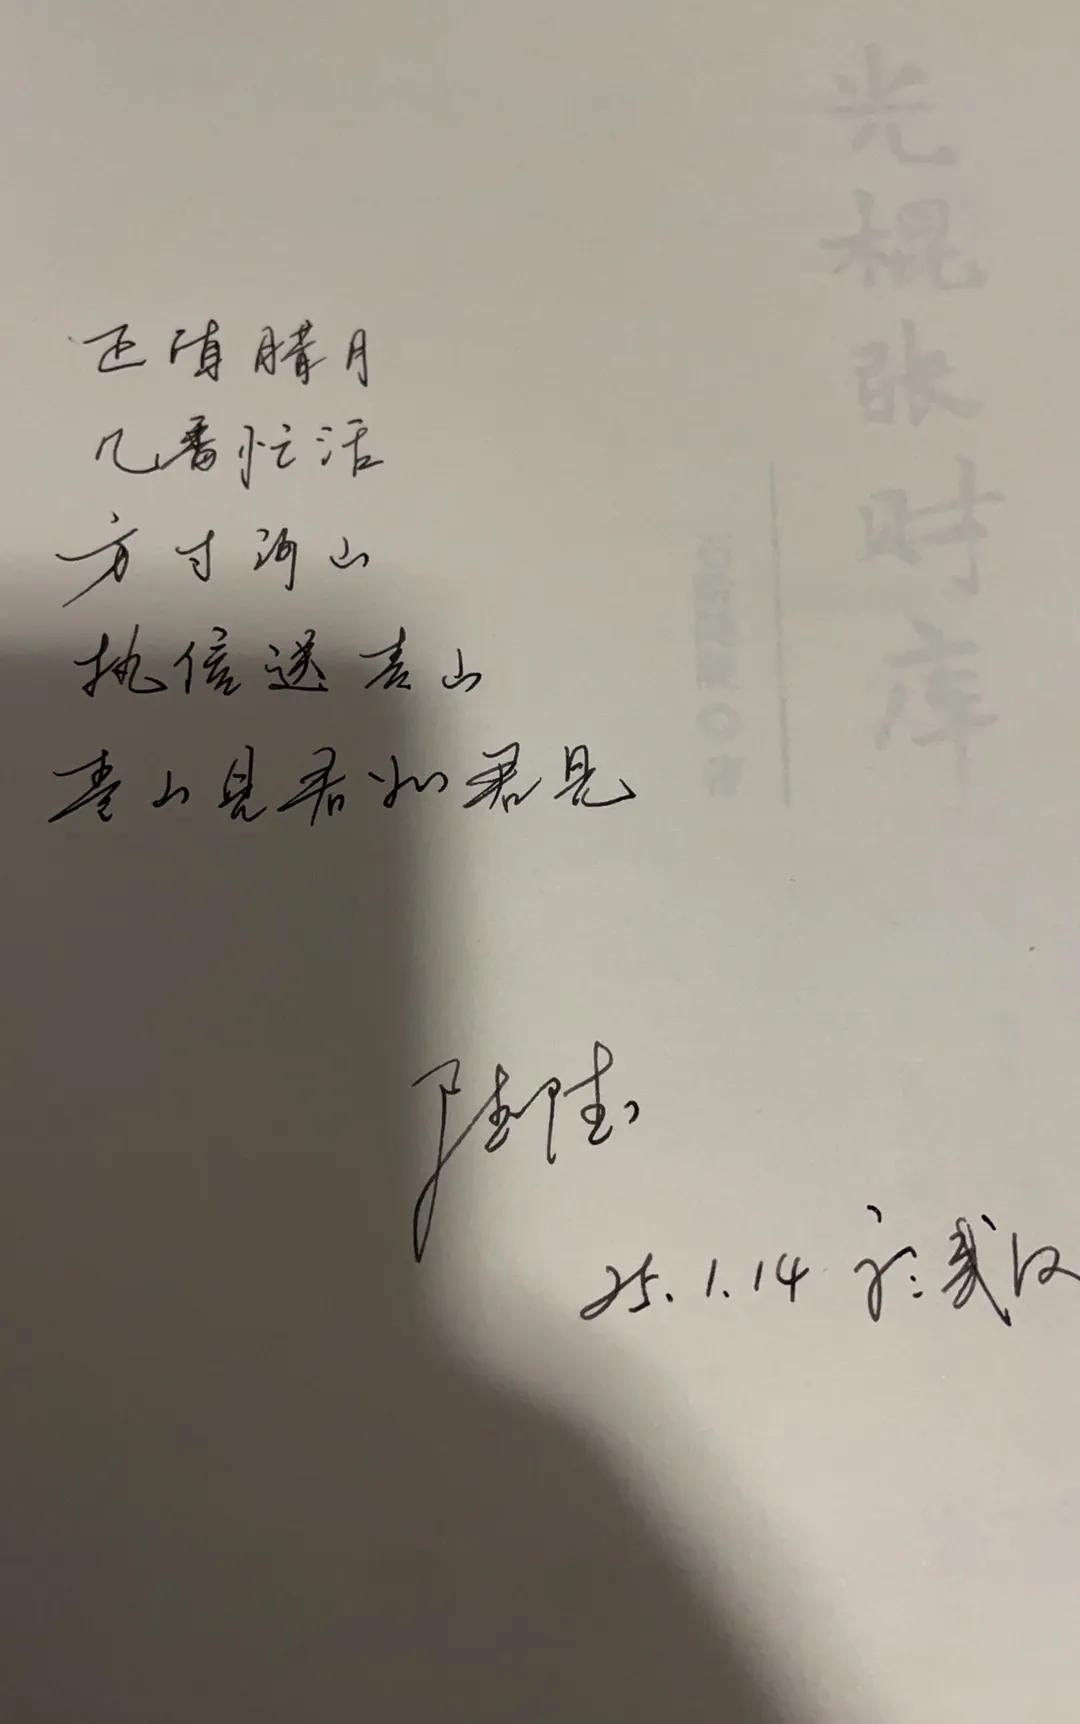 正值腊月
几番忙活
方寸河山
执信送青山
青山见君如君见
25.1.14 于武汉
光棍张时库